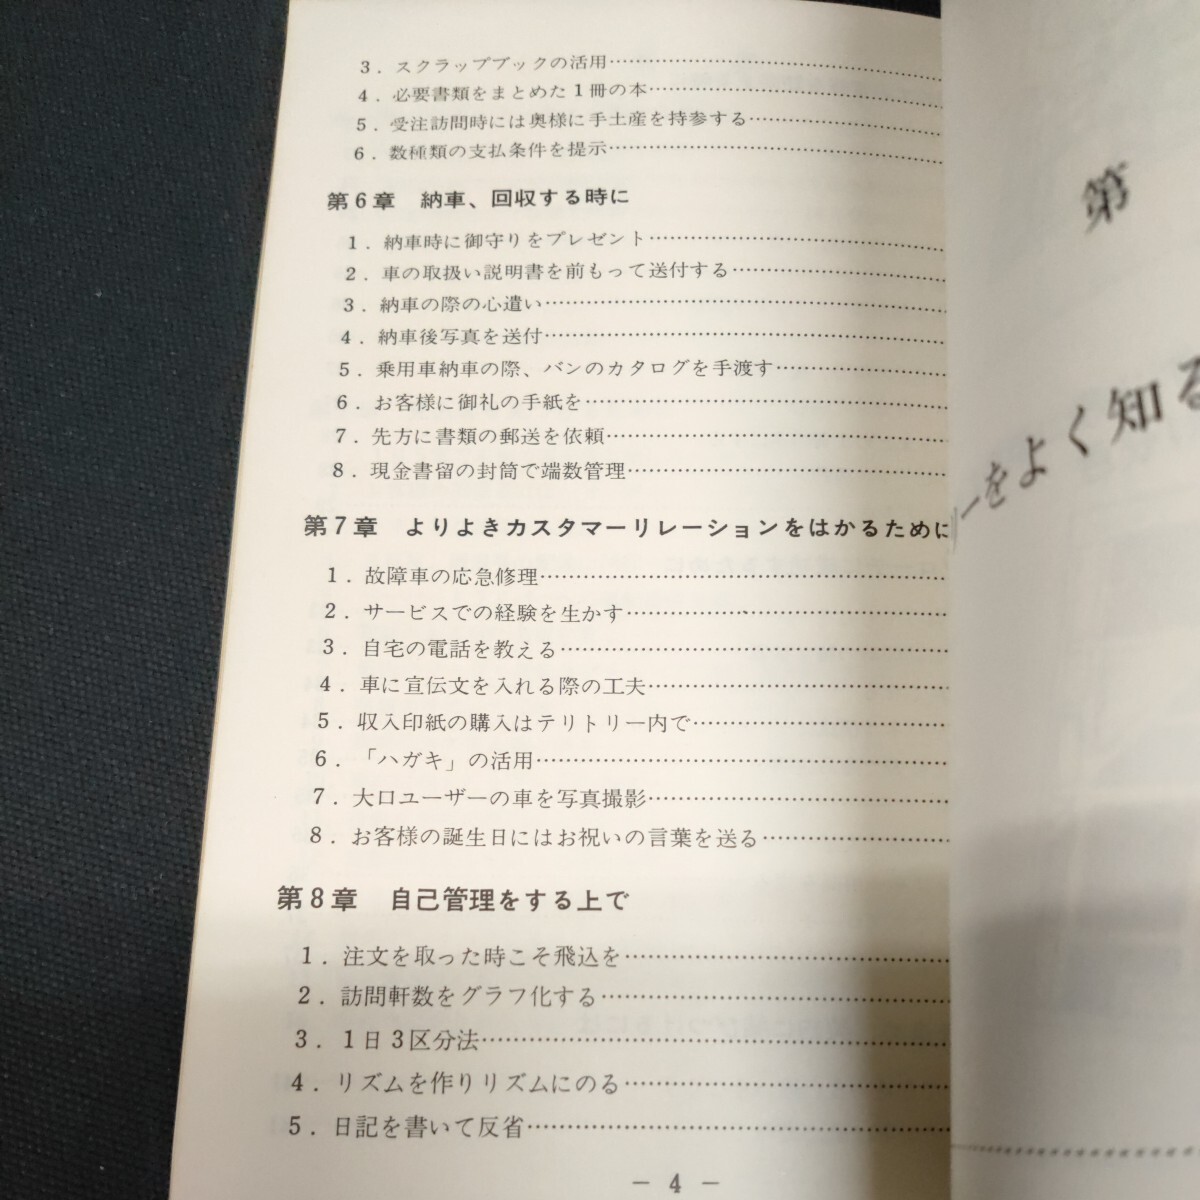 3．スクラップブックの活用……………………
4．必要書類をまとめた1冊の本……………………
5．受注訪問時には奥様に手土産を持参する……………………
6．数種類の支払条件を提示……………………
第6章　納車、回収する時に
1．納車時に御守りをプレゼント……………………
2．車の取扱い説明書を前もって送付する……………………
3．納車の際の心遣い……………………
4．納車後写真を送付……………………
5．乗用車納車の際、バンのカタログを手渡す……………………
6．お客様に御礼の手紙を……………………
7．先方に書類の郵送を依頼……………………
8．現金書留の封筒で端数管理……………………
第7章　よりよきカスタマーリレーションをはかるために
1．故障車の応急修理……………………
2．サービスでの経験を生かす……………………
3．自宅の電話を教える……………………
4．車に宣伝文を入れる際の工夫……………………
5．収入印紙の購入はテリトリー内で……………………
6．「ハガキ」の活用……………………
7．大口ユーザーの車を写真撮影……………………
8．お客様の誕生日にはお祝いの言葉を送る……………………
第8章　自己管理をする上で
1．注文を取った時こそ飛込を……………………
2．訪問軒数をグラフ化する……………………
3．1日3区分法……………………
4．リズムを作りリズムにのる……………………
5．日記を書いて反省……………………
― 4 ―
第
ーをよく知る